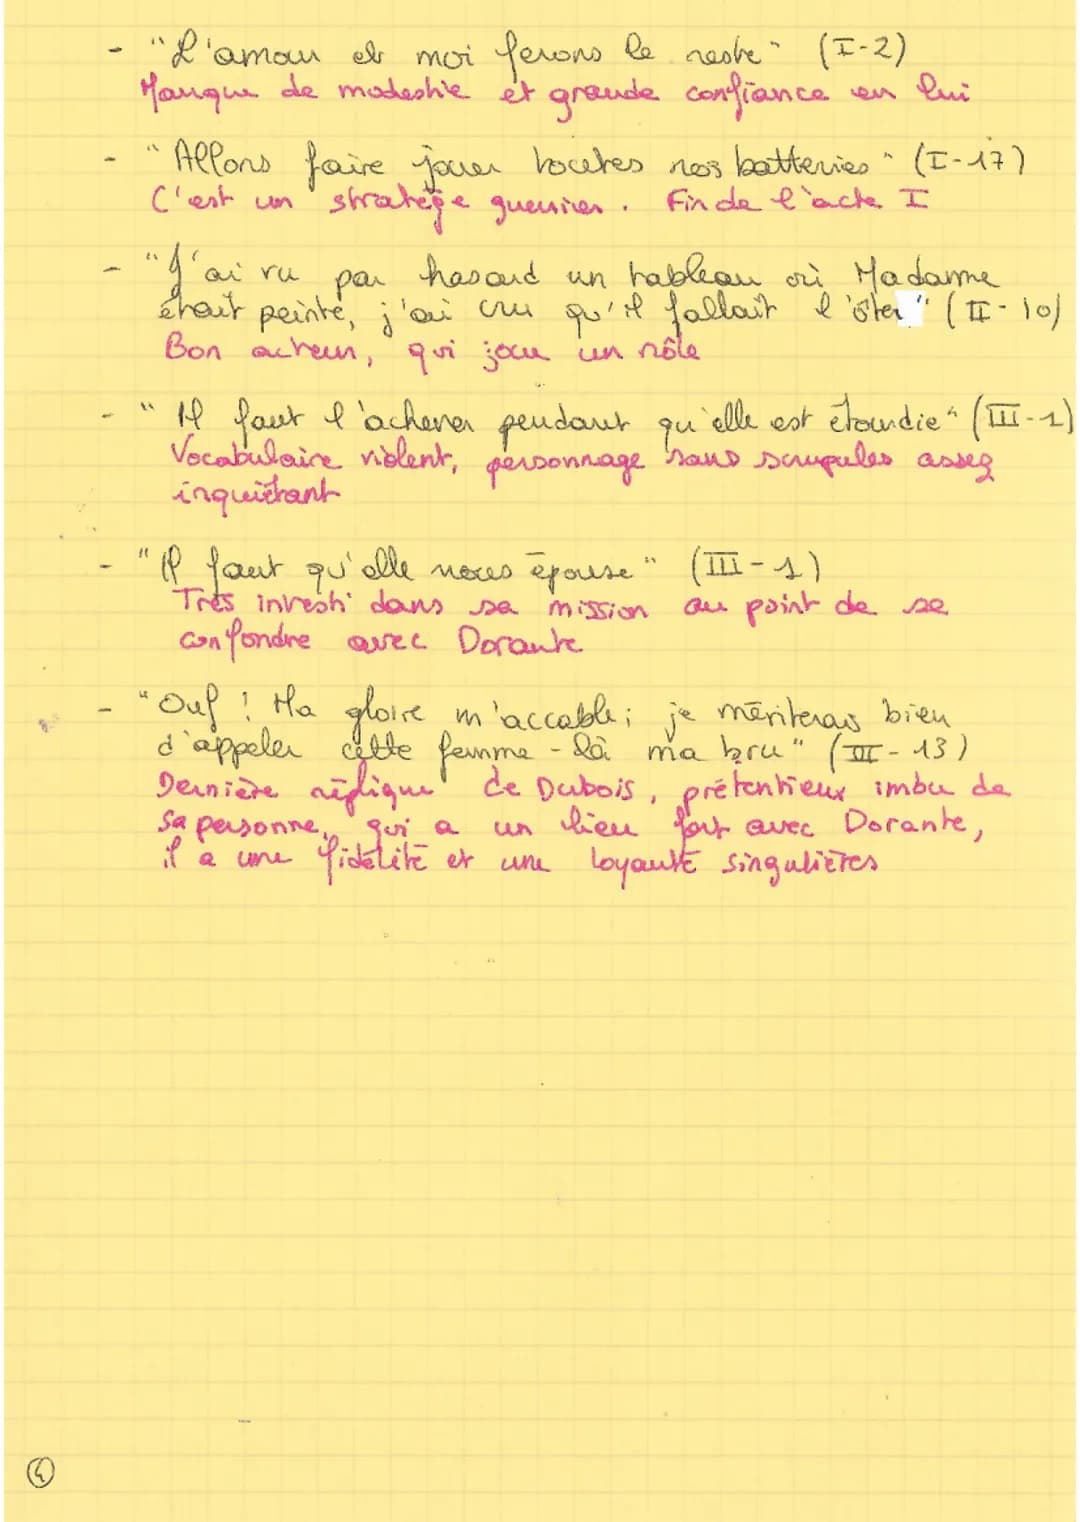 - "L'amour et moi ferons le reste" (I-2)
Manque de modestie et grande confiance en lui
- "Allons faire jouer toutes nos batteries" (I-17)
C'est un stratège guerrier. Fin de l'acte I
- "J'ai vu par hasard un tableau où Madame
était peinte, j'ai cru qu'il fallait l'ôter" (II-10)
Bon acteur, qui joue un rôle
- "Il faut l'achever pendant qu'elle est étourdie" (III-1)
Vocabulaire violent, personnage sans scrupules assez
inquiétant
- "Il faut qu'elle nous épouse" (III-1)
Très investi dans sa mission au point de se
confondre avec Dorante
- "Ouf ! Ma gloire m'accable ; je mériterais bien
d'appeler cette femme-là ma bru" (III-13)
Dernière réplique de Dubois, prétentieux imbu de
sa personne, qui a un lien fort avec Dorante,
il a une fidélité et une loyauté singulières
4